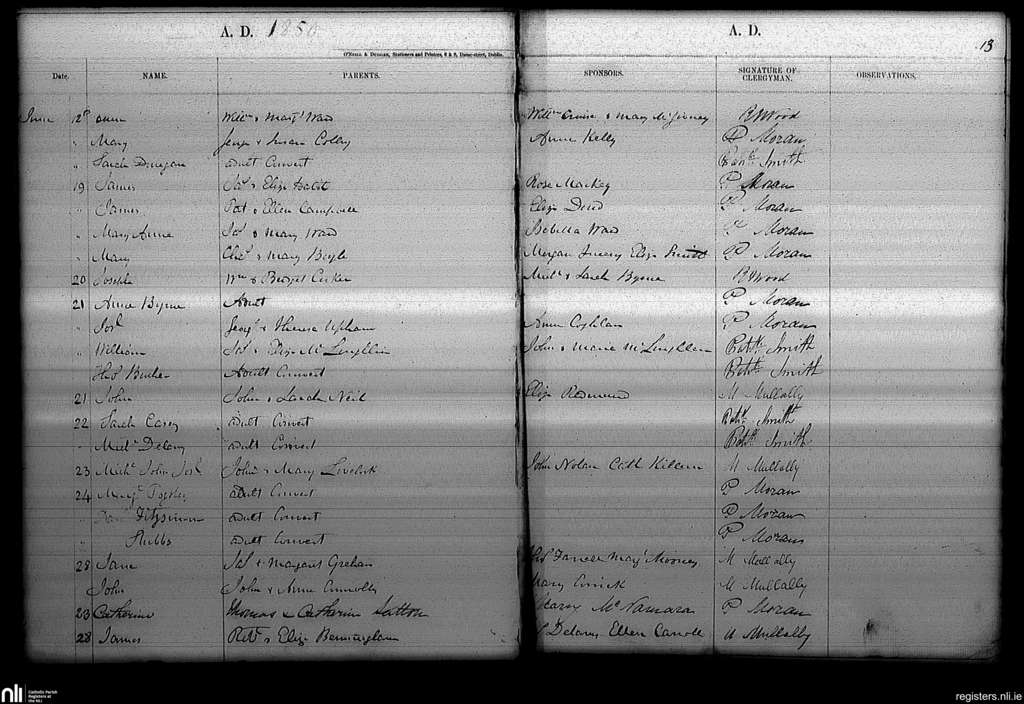 A. D. 1850
A. D.
13
O'Neill & Duggan, Stationers and Printers, Dame-street, Dublin.
Date. NAME. PARENTS. SPONSORS. SIGNATURE OF CLERGYMAN. OBSERVATIONS.
June Anne Willm & Margt Ward Willm & Mary B Wood
" Mary & Susan Anne Kelly P Moran
" Sarah adult Convert Patk Smith
19 James Jas & Eliza Rose Mackey P Moran
" James Pat & Ellen Campbell Eliza P Moran
" Mary Anne Jas & Mary Ward Isabella Ward P Moran
" Mary & Mary Boyle Morgan Eliza P Moran
20 Joseph Wm & Bridget Michl & Sarah Byrne B Wood
21 Anne Byrne Adult P Moran
" Josh George & Theresa Upham Anne Coghlan P Moran
" William Jas & Eliza McLoughlin John & Maria McLoughlin Patk Smith
Adult Convert Patk Smith
21 John John & Sarah Neil Eliza Redmond M Mullally
22 Sarah Casey adult Convert Patk Smith
" Michl Delany adult Convert Patk Smith
23 Michl John Josh John & Mary Lovelock John Nolan Cath M Mullally
24 adult Convert P Moran
" Fitzsimon adult Convert P Moran
" Stubbs adult Convert P Moran
28 Jane Jas & Margaret Graham Farrell Mary Mooney M Mullally
John John & Anne Connolly Mary M Mullally
23 Catherine Thomas & Catherine Sutton McNamara P Moran
28 James & Eliza Bermingham Delany Ellen Carroll M Mullally
nli
Catholic Parish
Registers at
the NLI
registers.nli.ie